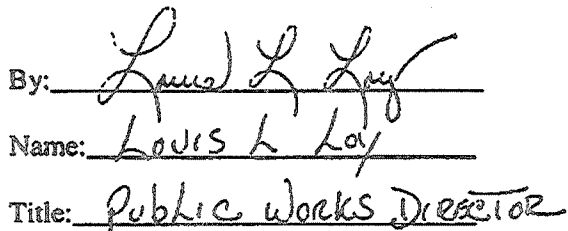 By:
Name: Louis L Lay
Title: Public Works Director